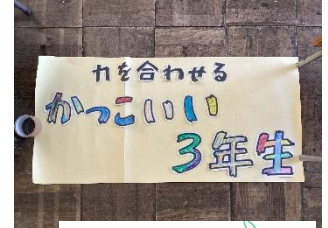 力を合わせる
かっこいい
3年生